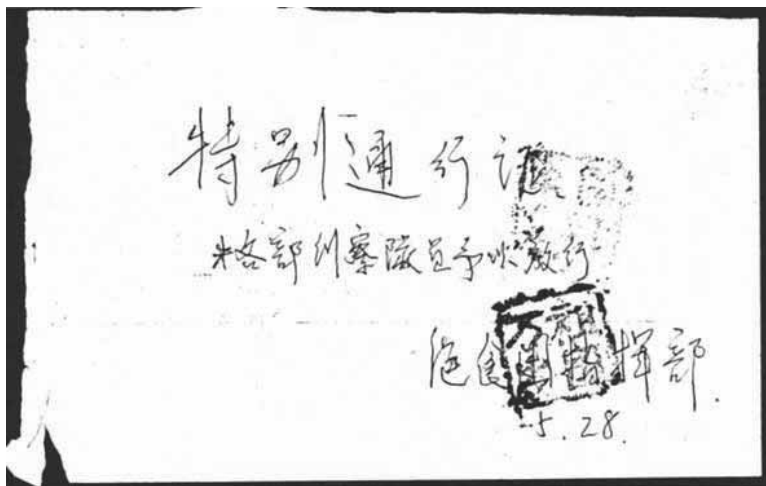 特别通行证
各部纠察队员予以放行
绝食团指挥部.
5.28.